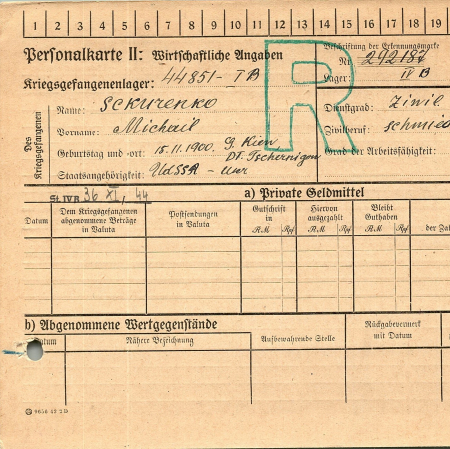 1 2 3 4 5 6 7 8 9 10 11 12 13 14 15 16 17 18 19
Personalkarte II: Wirtschaftliche Angaben
Beschriftung der Erkennungsmarke
Nr. 292187
Kriegsgefangenenlager: 44851- IB
Lager: IV B
R
Des Kriegsgefangenen
Name: Sckurenko
Dienstgrad: Zivil
Vorname: Michail
Zivilberuf:
Geburtstag und -ort: 15.11.1900. G. Kiew
Grad der Arbeitsfähigkeit:
DT. Tschernigow
Staatsangehörigkeit: UdSSR -
St. IV B 36 XI, 44
a) Private Geldmittel
Datum
Dem Kriegsgefangenen abgenommene Beträge in Valuta
Postsendungen in Valuta
Gutschrift in
RM Rpf
Hiervon ausgezahlt
RM Rpf
Bleibt Guthaben
RM Rpf
der
b) Abgenommene Wertgegenstände
Nähere Bezeichnung
Aufbewahrende Stelle
Rückgabevermerk mit Datum